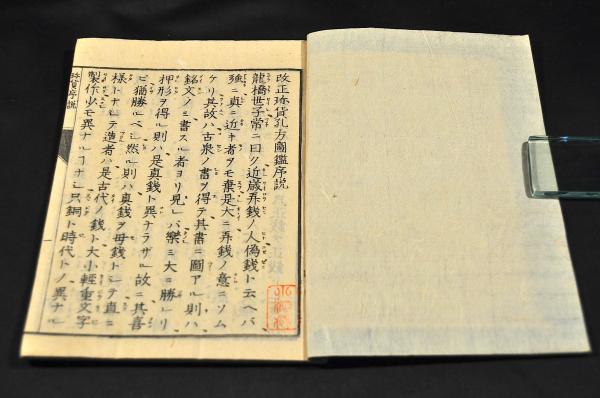 改正珍貨孔方圖鑑序説
龍橋世子常ニ曰ク近歳弄銭ノ人偽銭ト云ヘバ
殊ニ真ニ近キ者ヲモ棄是大ニ弄銭ノ意ニソム
ケリ其故ハ古泉ノ書ヲ得テ其書ニ圖アル則ハ
銘文ノミ書スル者ヨリ見レバ樂ミ大ニ勝レリ
押形ヲ得ル則ハ是真銭ト異ナラザル故ニ其喜
ビ猶勝ルベシ然ル則ハ真銭ヲ母銭トシテ直ニ
様トナシテ造者ハ是古代ノ銭ト大小輕重文字
製作少モ異ナルヿナシ只銅ト時代トノ異ナル
珍貨序説